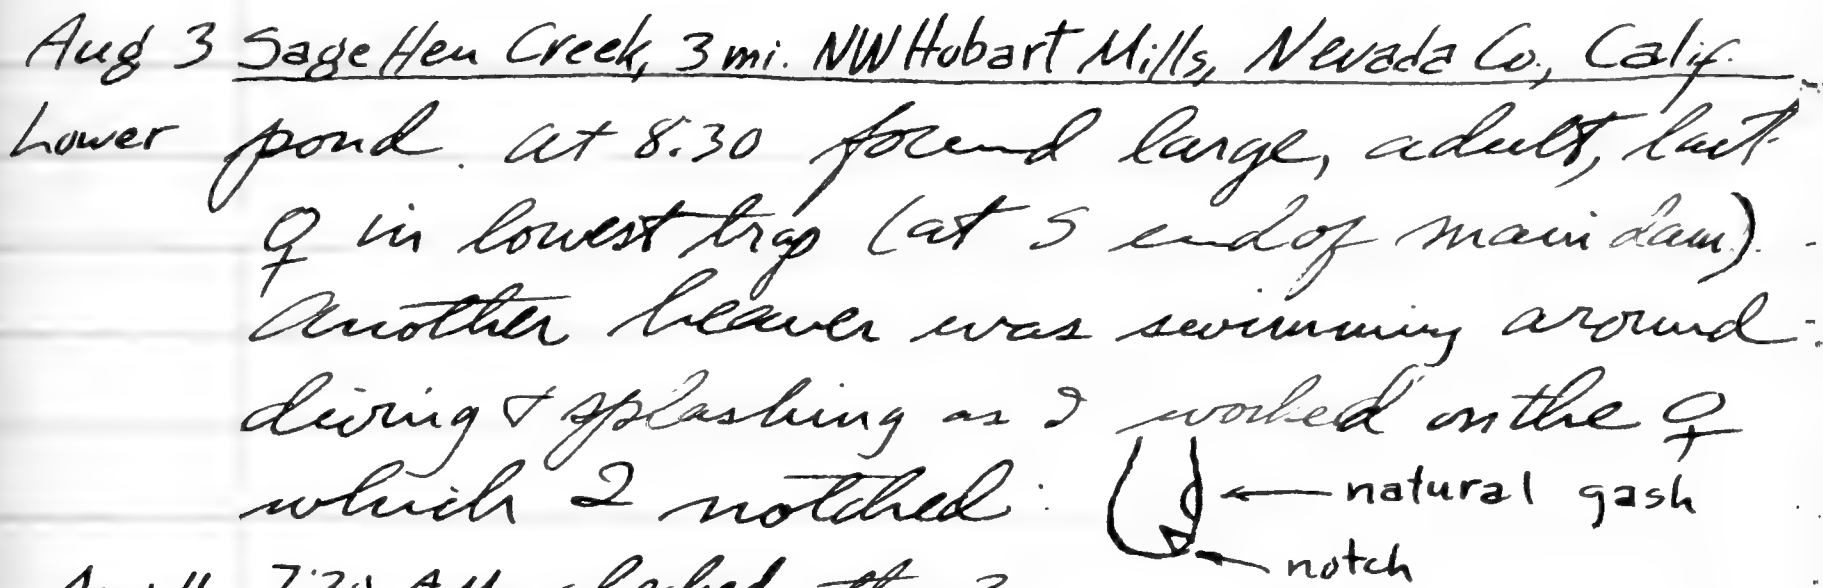 Aug 3 Sage Hen Creek, 3 mi. NW Hobart Mills, Nevada Co., Calif.
Lower pond. at 8:30 found large, adult, lact.
♀ in lowest trap (at S end of main dam).
Another beaver was swimming around
diving & splashing as I worked on the ♀
which I notched:
natural gash
notch
7:30 AM